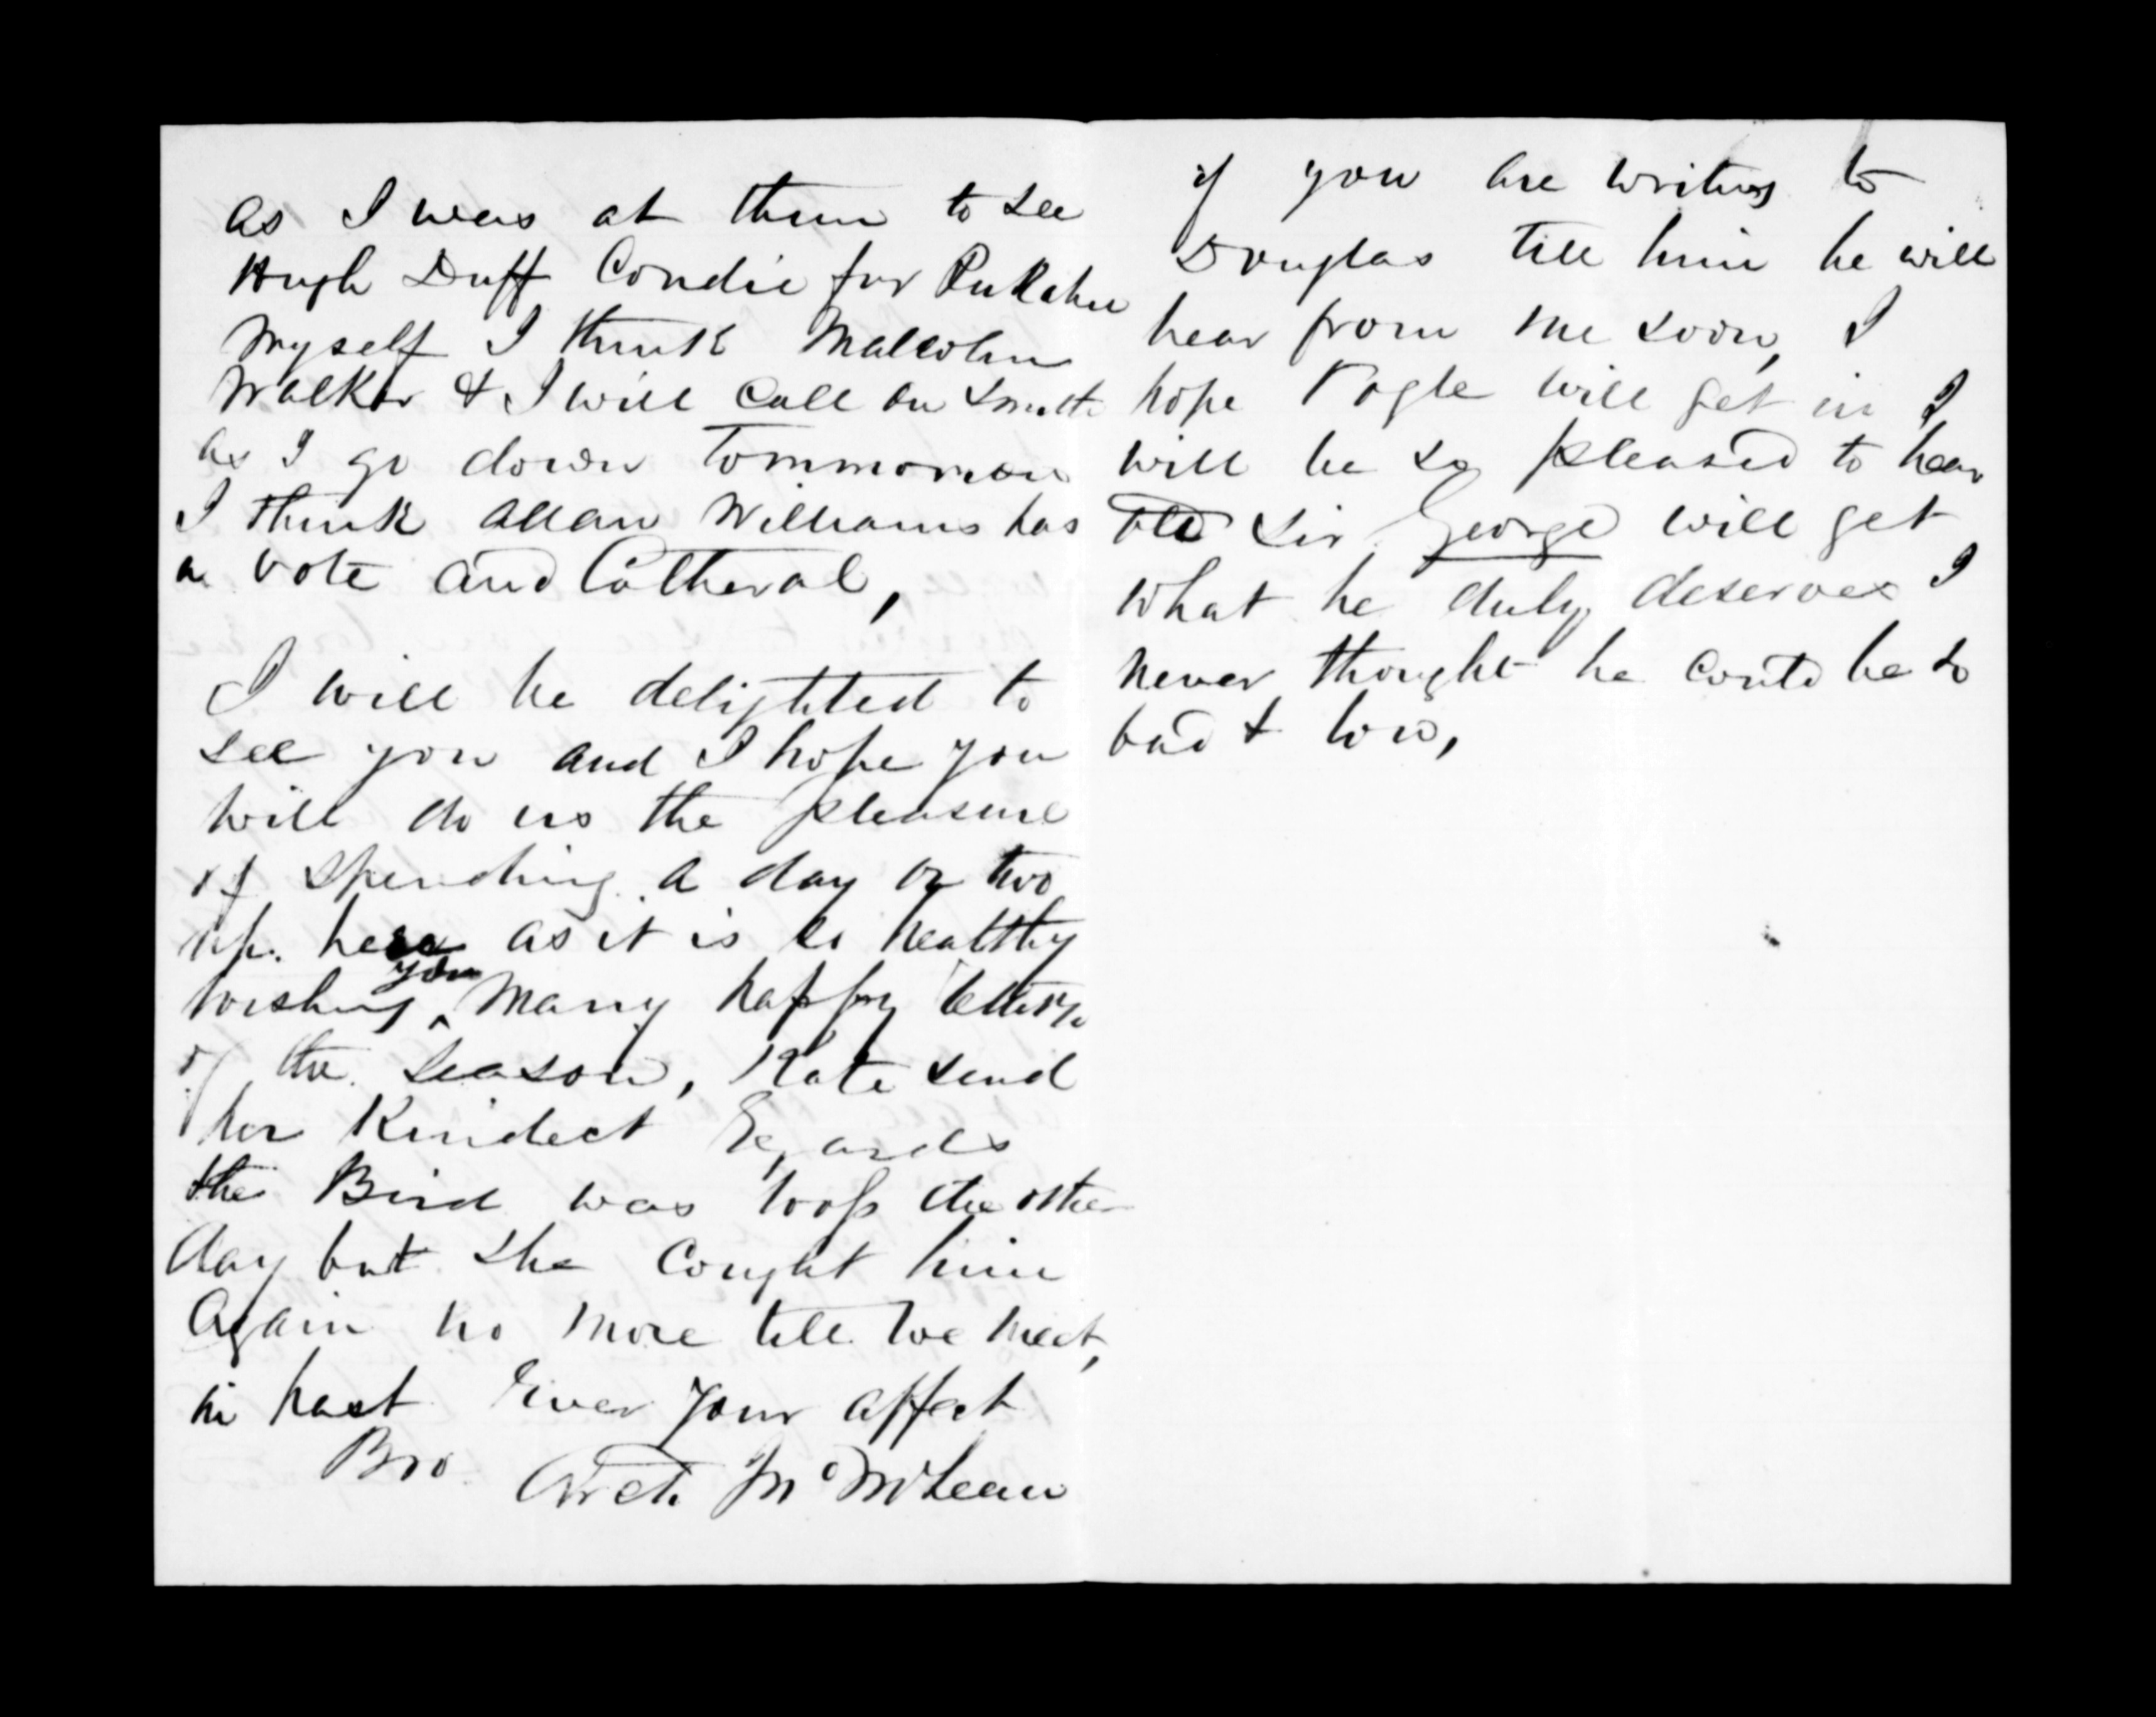 as I was at them to see
Hugh Duff Condie for Pukahu
Myself I think Malcolm
Walker & I will call on Smith
as I go down Tommorow
I think Allan Williams has
a vote and Catheral,
I will be delighted to
see you and I hope you
will do us the pleasure
of spending a day or two
up. here as it is so healthy
wishing you Many happy
of the season, Kate send
her Kindest Regards
the Bird was loose the other
day but she Cought him
Again no more till we meet,
in hast Ever Your affect
Bro. Arch McLean
if you are writing to
Douglas till him he will
hear from me soon, I
hope Vogle will get in I
will be so pleased to hear
old Sir George will get
what he duly deserves I
never thought he could be so
bad & low,